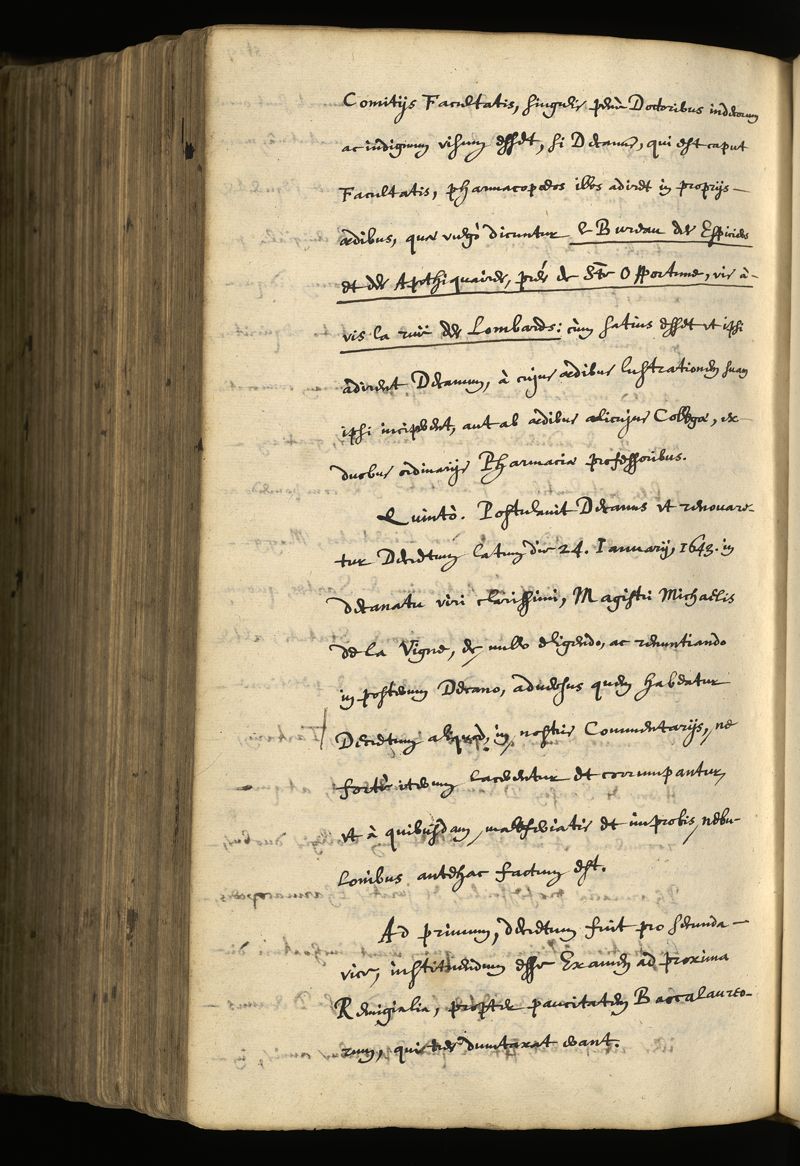 Comitijs Facultatis, singulis penè Doctoribus indecorum
ac indignum visum esset, si Decanus, qui est caput
Facultatis, pharmacopœos illos adiret in proprijs
ædibus, quæ vulgò dicuntur le Bureau des Espiciers
et des Apothiquaires, prés de Ste Opportune, vis à-
vis la ruë des Lombards: cùm satius esset vt ipsi
adirent Decanum, à cujus ædibus lustrationem suam
ipsi inciperent, aut ab ædibus alicujus Collegæ, ex
duobus ordinarijs Pharmaciæ professoribus.
Quintò. Postulavit Decanus vt renouare-
tur Decretum latum die 24. Ianuarij, 1643. in
decanatu viri clarissimi, Magistri Michaelis
de la Vigne, de nullo eligendo, ac renuntiando
in posterum Decano, aduersus quem habeatur
Decretum aliquod, in nostris Commentarijs, ne
fortè iterum lacerentur et corrumpantur,
vt à quibusdam, malè feriatis et improbis, nebu-
lonibus antehac factum est.
Ad primum, decretum fuit pro secunda
vice, instituendum esse Examen ad proxima
Remigialia, propter paucitatem Baccalaureo-
rum, qui tres dumtaxat erant.